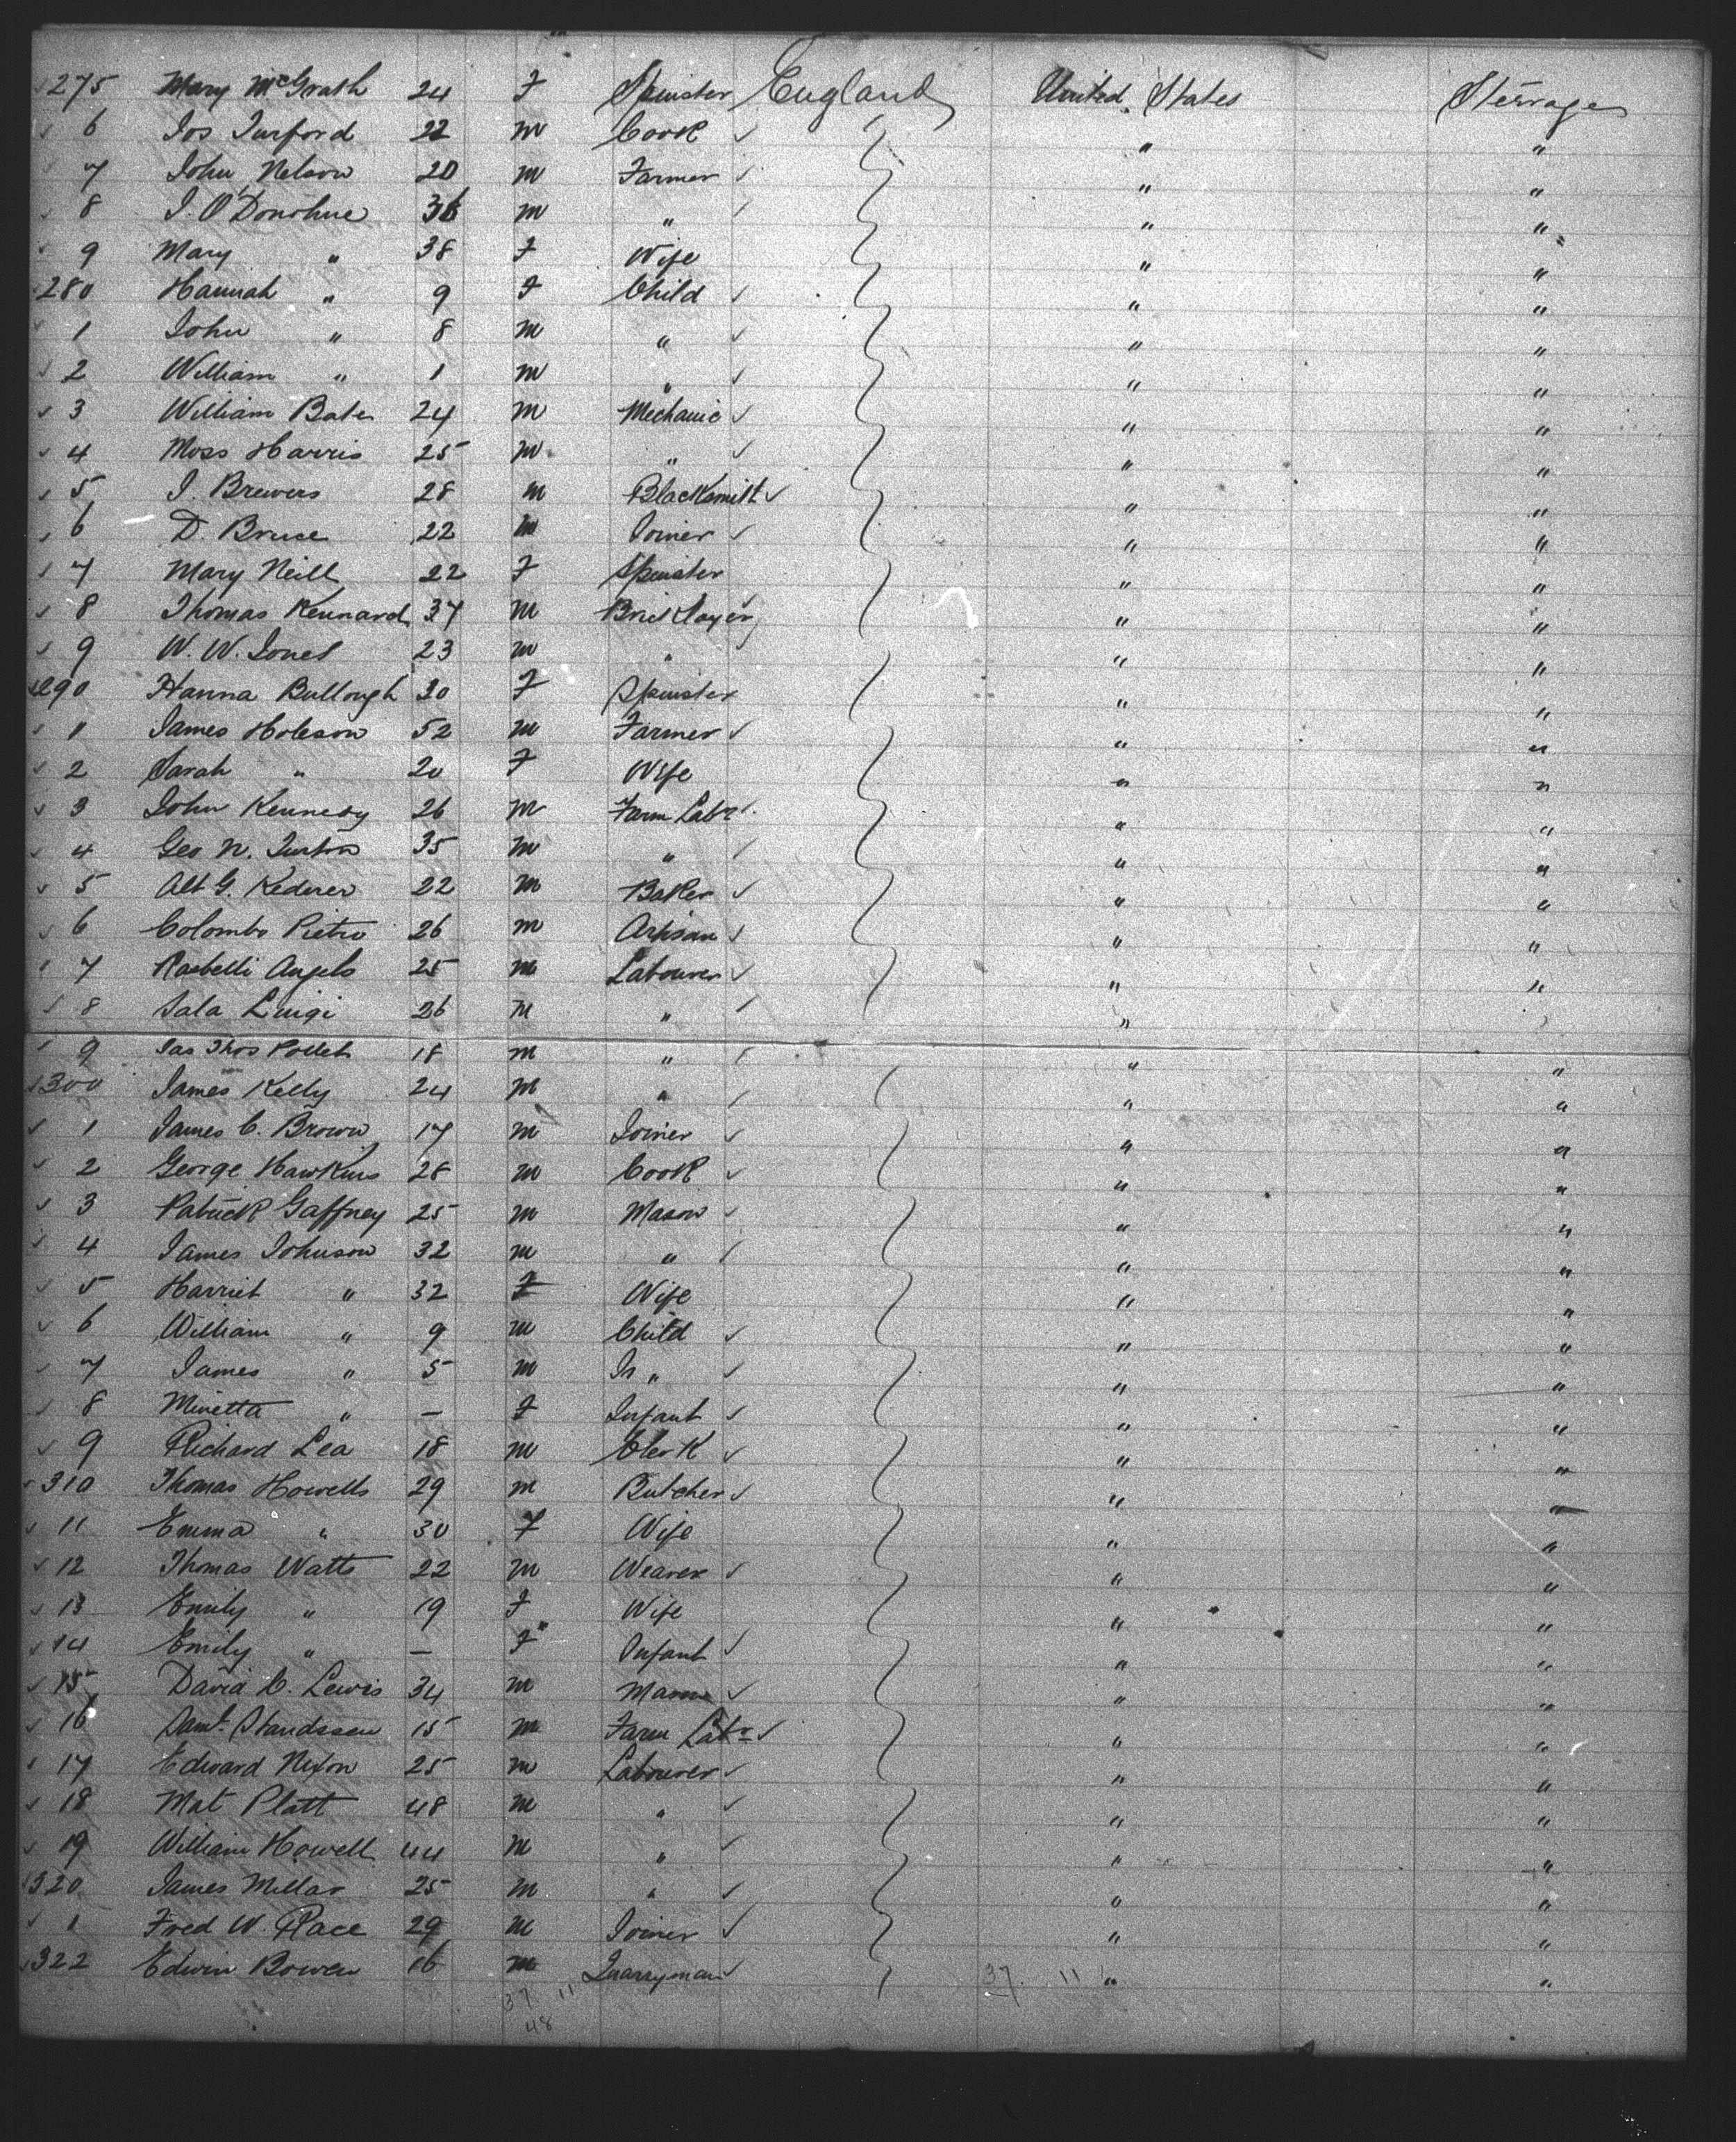 275 Mary McGrath 24 F Spinster England United States Steerage
6 Jos Turford 22 m Cook " "
7 John Nelson 20 m Farmer " "
8 J. O'Donohue 36 m " " "
9 Mary " 38 F Wife " "
280 Hannah " 9 F Child " "
1 John " 8 m " " "
2 William " 1 m " " "
3 William Bate 24 m Mechanic " "
4 Moss Harris 25 m " " "
5 J. Brewers 28 m Blacksmith " "
6 D. Bruce 22 m Joiner " "
7 Mary Neill 22 F Spinster " "
8 Thomas Kennard 37 m Bricklayer " "
9 W. W. Jones 23 m " " "
290 Hanna Bullough 20 F Spinster " "
1 James Hobson 52 m Farmer " "
2 Sarah " 20 F Wife " "
3 John Kennedy 26 m Farm Labr " "
4 Geo N. Turton 35 m " " "
5 Alt G. 22 m Baker " "
6 Colombo Pietro 26 m Artisan " "
7 Angelo 25 m Labourer " "
8 Sala Luigi 26 m " " "
9 Jas Thos 18 m " " "
300 James Kelly 24 m " " "
1 James C. Brown 17 m Joiner " "
2 George Hawkins 28 m Cook " "
3 Patrick Gaffney 25 m Mason " "
4 James Johnson 32 m " " "
5 Harriet " 32 F Wife " "
6 William " 9 m Child " "
7 James " 5 m " " "
8 Minetta " — F Infant " "
9 Richard Lea 18 m Clerk " "
310 Thomas Howells 29 m Butcher " "
11 Emma " 30 F Wife " "
12 Thomas Watts 22 m Weaver " "
13 Emily " 19 F Wife " "
14 Emily " — F Infant " "
15 David C. Lewis 34 m " "
16 Saml 15 m Farm Labr " "
17 Edward Nixon 25 m Labourer " "
18 Mat Platt 48 m " " "
19 William Howell 44 m " " "
320 James Millar 25 m " " "
1 Fred W. Race 29 m Joiner " "
322 Edwin Bowen 16 m Quarryman " "
37 11 37 11
48